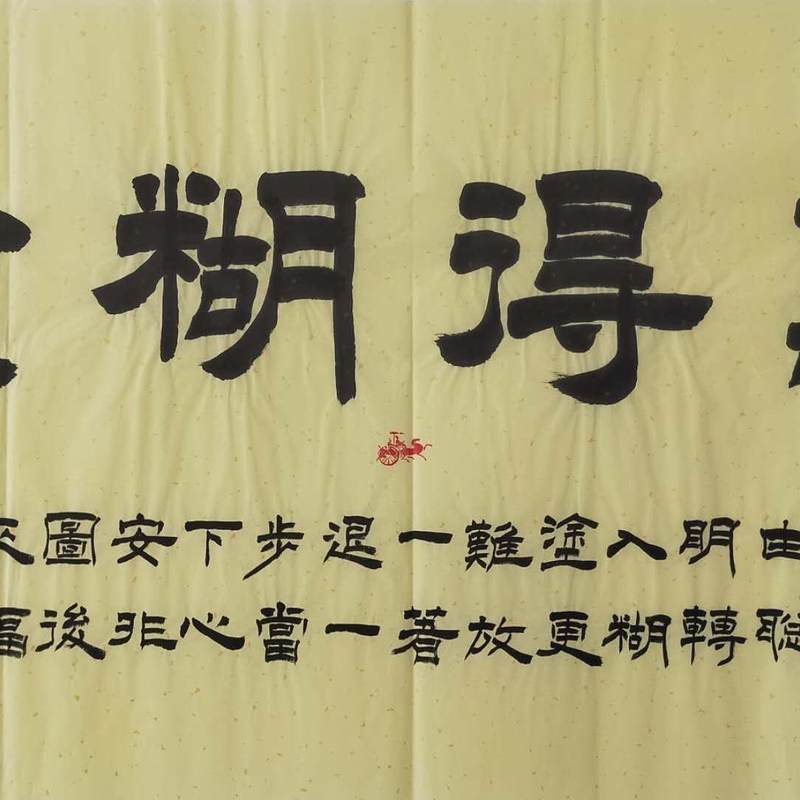 得糊
由聰
明轉
入糊
塗更
難放
一著
退一
步當
下心
安非
圖後
福